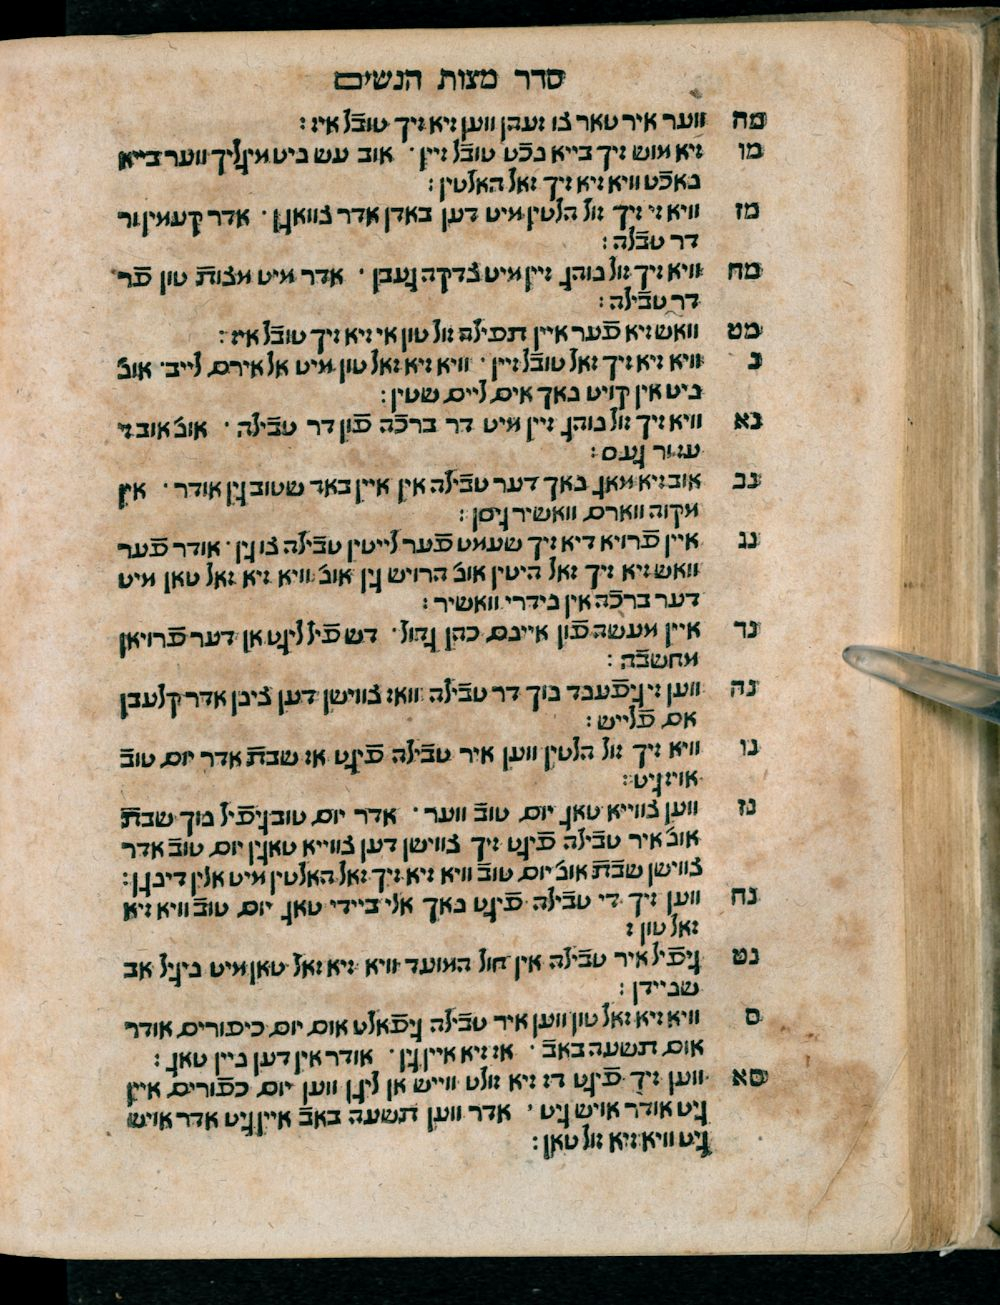 סדר מצות הנשים
מה ווער איר טאר צו זעהן ווען זיא זיך טובֿל איז :
מו זיא מוש זיך בייא נכֿט טובֿל זיין · אוב עש ניט מיגליך ווער בייא
נאכֿט וויא זיא זיך זאל האלטין :
מז וויא זי זיך זול הלטין מיט דען באדן אדר צוואגן · אדר קעמין ור
דר טבֿלה :
מח וויא זיך זול נוהג זיין מיט צדקה געבן · אדר מיט מצות טון פֿר
דר טבֿילה :
מט וואש זיא פֿער איין תפילה זול טון אי זיא זיך טובֿל איז :
נ וויא זיא זיך זאל טובֿל זיין · וויא זיא זאל טון מיט אל אירם לייב · אוב׳
ניט אין קויט נאך אים ליים שטין :
נא וויא זיך זול נוהג זיין מיט דר ברכֿה פֿון דר טבֿילה · אוב׳ אוב זי
עזור געס :
נב אוב זיא מאג נאך דער טבֿילה אין איין באד שטוב גין אודר · אין
מקוה ווארם וואשיר גיסן :
נג איין פֿרויא דיא זיך שעמט פֿער לייטין טבֿילה צו גין · אודר פֿער
וואש זיא זיך זאל היטין אוב׳ הרויש גין אוב׳ וויא זיא זאל טאן מיט
דער ברכֿה אין נידרי וואשיר :
נד איין מעשה פֿון איינם כהן גדול · דש פֿיל ליגט אן דער פֿרויאן
מחשבֿה :
נה ווען זי גיפֿעבד נוך דר טבֿילה וואז צווישן דען צינן אדר קלעבן
אם פֿלייש :
נו וויא זיך זול הלטין ווען איר טבֿילה פֿיגט אז שבת אדר יום טוב
אויז גיט :
נז ווען צווייא טאג יום טוב ווער · אדר יום טוב גיפֿיל נוך שבת
אוב׳ איר טבֿילה פֿיגט זיך צווישן דען צווייא טאגין יום טוב אדר
צווישן שבת אוב׳ יום טוב וויא זיא זיך זאל האלטין מיט אלין דינגן :
נח ווען זיך די טבֿילה פֿיגט נאך אלי ביידי טאג יום טוב וויא זיא
זאל טון :
נט גיפֿיל איר טבֿילה אין חול המועד וויא זיא זאל טאן מיט ניגיל אב
שניידן :
ס וויא זיא זאל טון ווען איר טבֿילה גיפֿאלט אום יום כיפורים אודר
אום תשעה באב · אז זיא איין גין · אודר אין דען ניין טאג :
סא ווען זיך פֿיגט דז זיא זולט ווייש אן ליגן ווען יום כפורים איין
גיט אודר אויש גיט · אדר ווען תשעה באב איין גיט אדר אויש
גיט וויא זיא זול טאן :